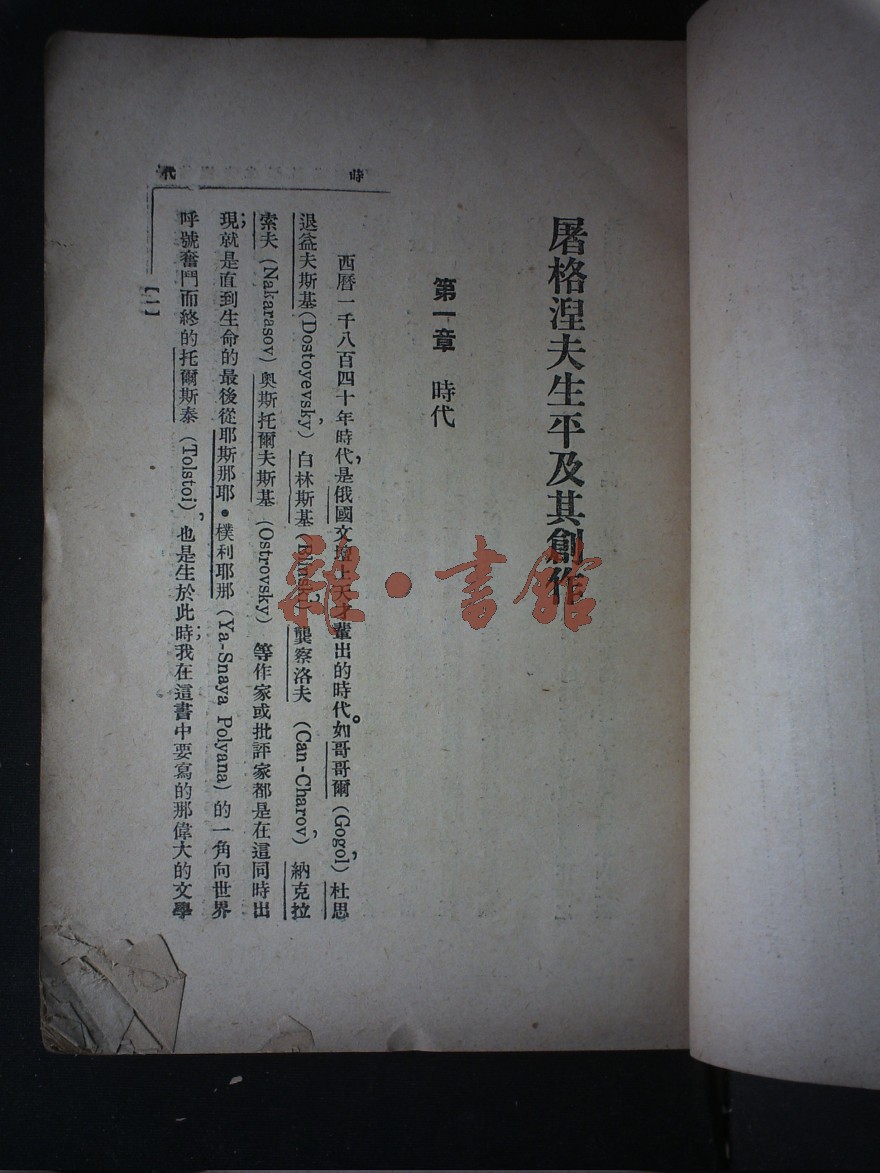 屠格涅夫生平及其創作
第一章　時代
西曆一千八百四十年時代，是俄國文壇上天才輩出的時代。如哥哥爾(Gogol)，杜思
退益夫斯基(Dostoyevsky)，白林斯基(Blinsky)，龔察洛夫 (Can-Charov)，納克拉
索夫 (Nakarasov) 奧斯托爾夫斯基 (Ostrovsky) 等作家或批評家都是在這同時出
現；就是直到生命的最後從耶斯那耶•樸利耶那 (Ya-Snaya Polyana) 的一角向世界
呼號奮鬥而終的托爾斯泰 (Tolstoi)，也是生於此時；我在這書中要寫的那偉大的文學
時代
【一】
雜·書館